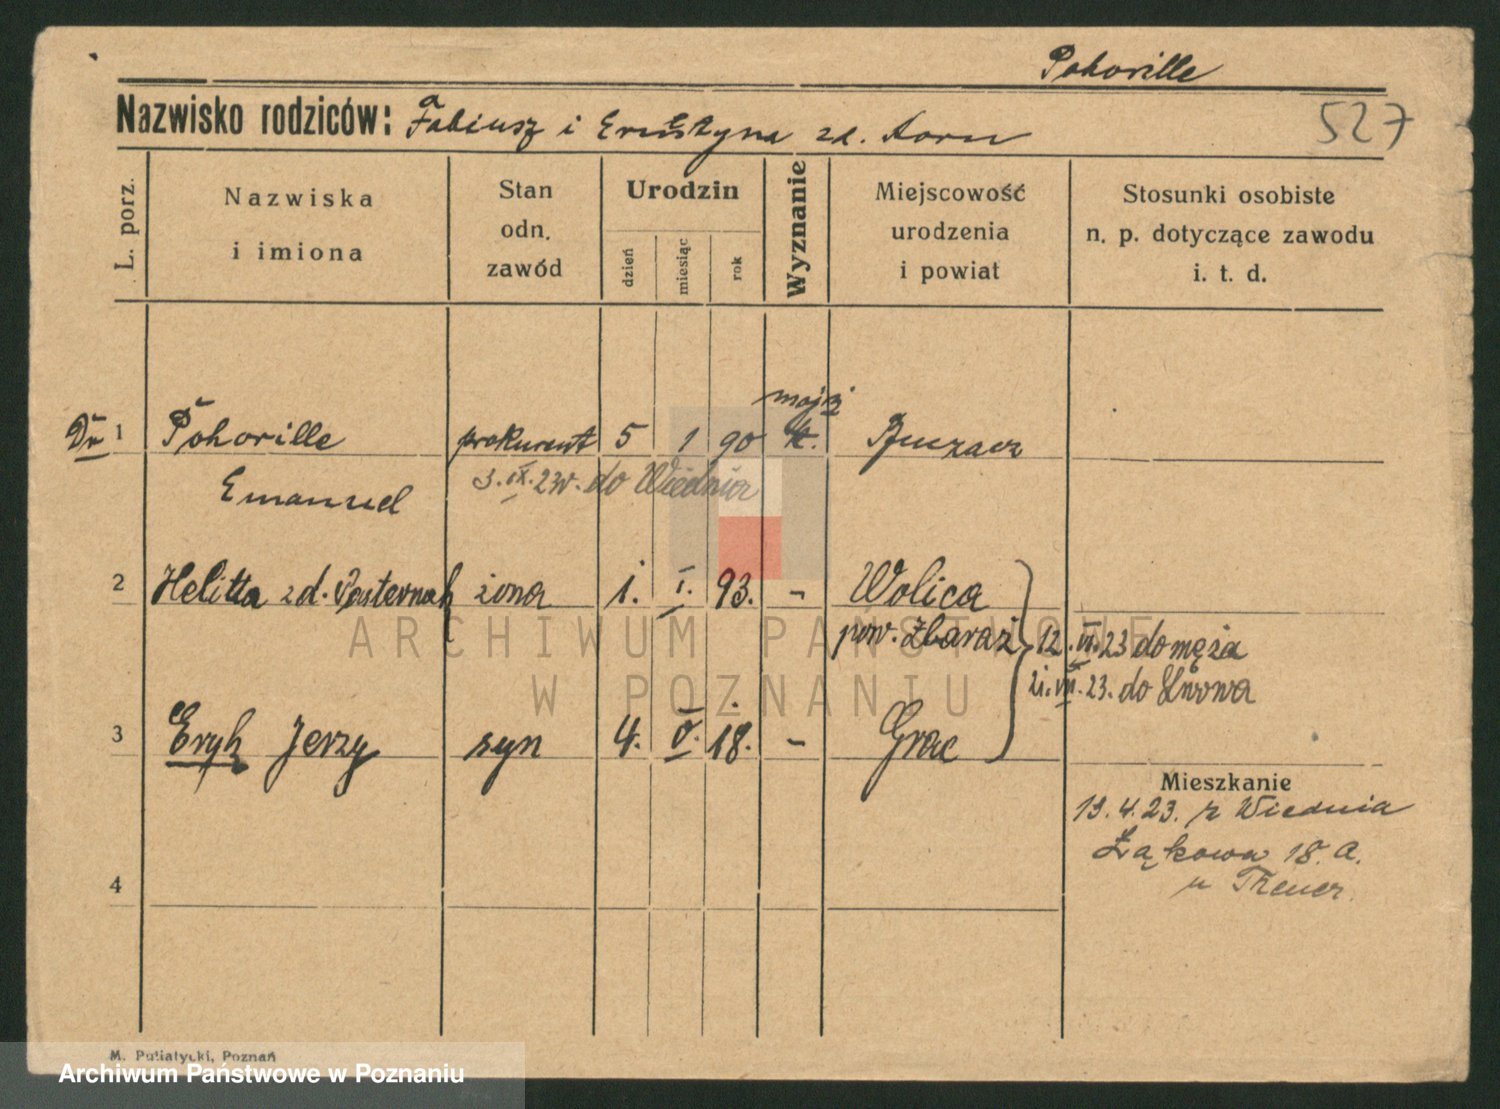 Pohorille
Nazwisko rodziców: Fabiusz i Ernestyna zd. Korn
527
L. porz.
Nazwiska
i imiona
Stan
odn.
zawód
Urodzin
dzień
miesiąc
rok
Wyznanie
Miejscowość
urodzenia
i powiat
Stosunki osobiste
n. p. dotyczące zawodu
i. t. d.
mojż
Dr 1 Pohorille prokurent 5 1 90 k. Buczacz
3.IX.23r. do Wiednia
Emanuel
2 Helitta zd. Pasternak żona 1. I. 93. - Wolica
pow. Zbaraż 12.VI.23 do męża
21.VII.23. do Lwowa
3 Eryk Jerzy syn 4. V. 18. - Grac
Mieszkanie
19.4.23. z Wiednia
Łąkowa 18.a.
u Theuer.
4
ARCHIWUM PAŃSTWOWE
W POZNANIU
M. Putiatycki, Poznań
Archiwum Państwowe w Poznaniu